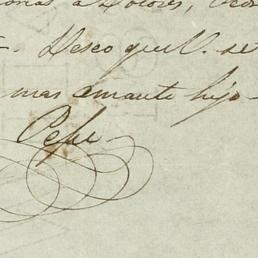 a Dolores,
Deseo que V. se
mas amante hijo
Pepe